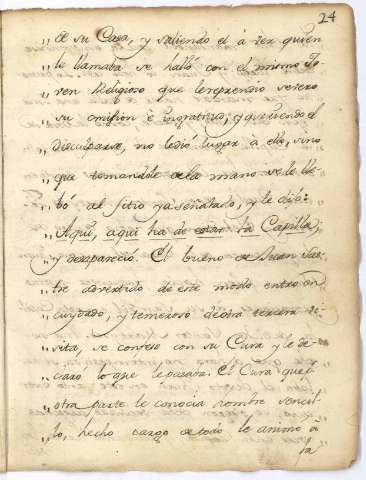 24
„ de su Casa, y saliendo el à ver quien
„ le llamaba se halló con el mismo Jo-
„ ven Religioso que lereprendio severo
„ su omision è ingratitud, y queriendo el
„ disculparse, no ledió lugar à ello, sino
„ que tomandole dela mano se le lle
„ bó al sitio ya señalado, y le dijo:
„ Aqui, aqui ha de estar la Capilla,
„ y desapareció. El bueno de Juan Sas-
„ tre advertido de este modo entro en
„ cuydado, y temeroso deotra tercera vi-
„ sita, se confeso con su Cura y le de-
„ claró lo que le pasaba. El Cura que p.r
„ otra parte le conocia hombre sencil-
„ lo, hecho cargo de todo le animo à
la